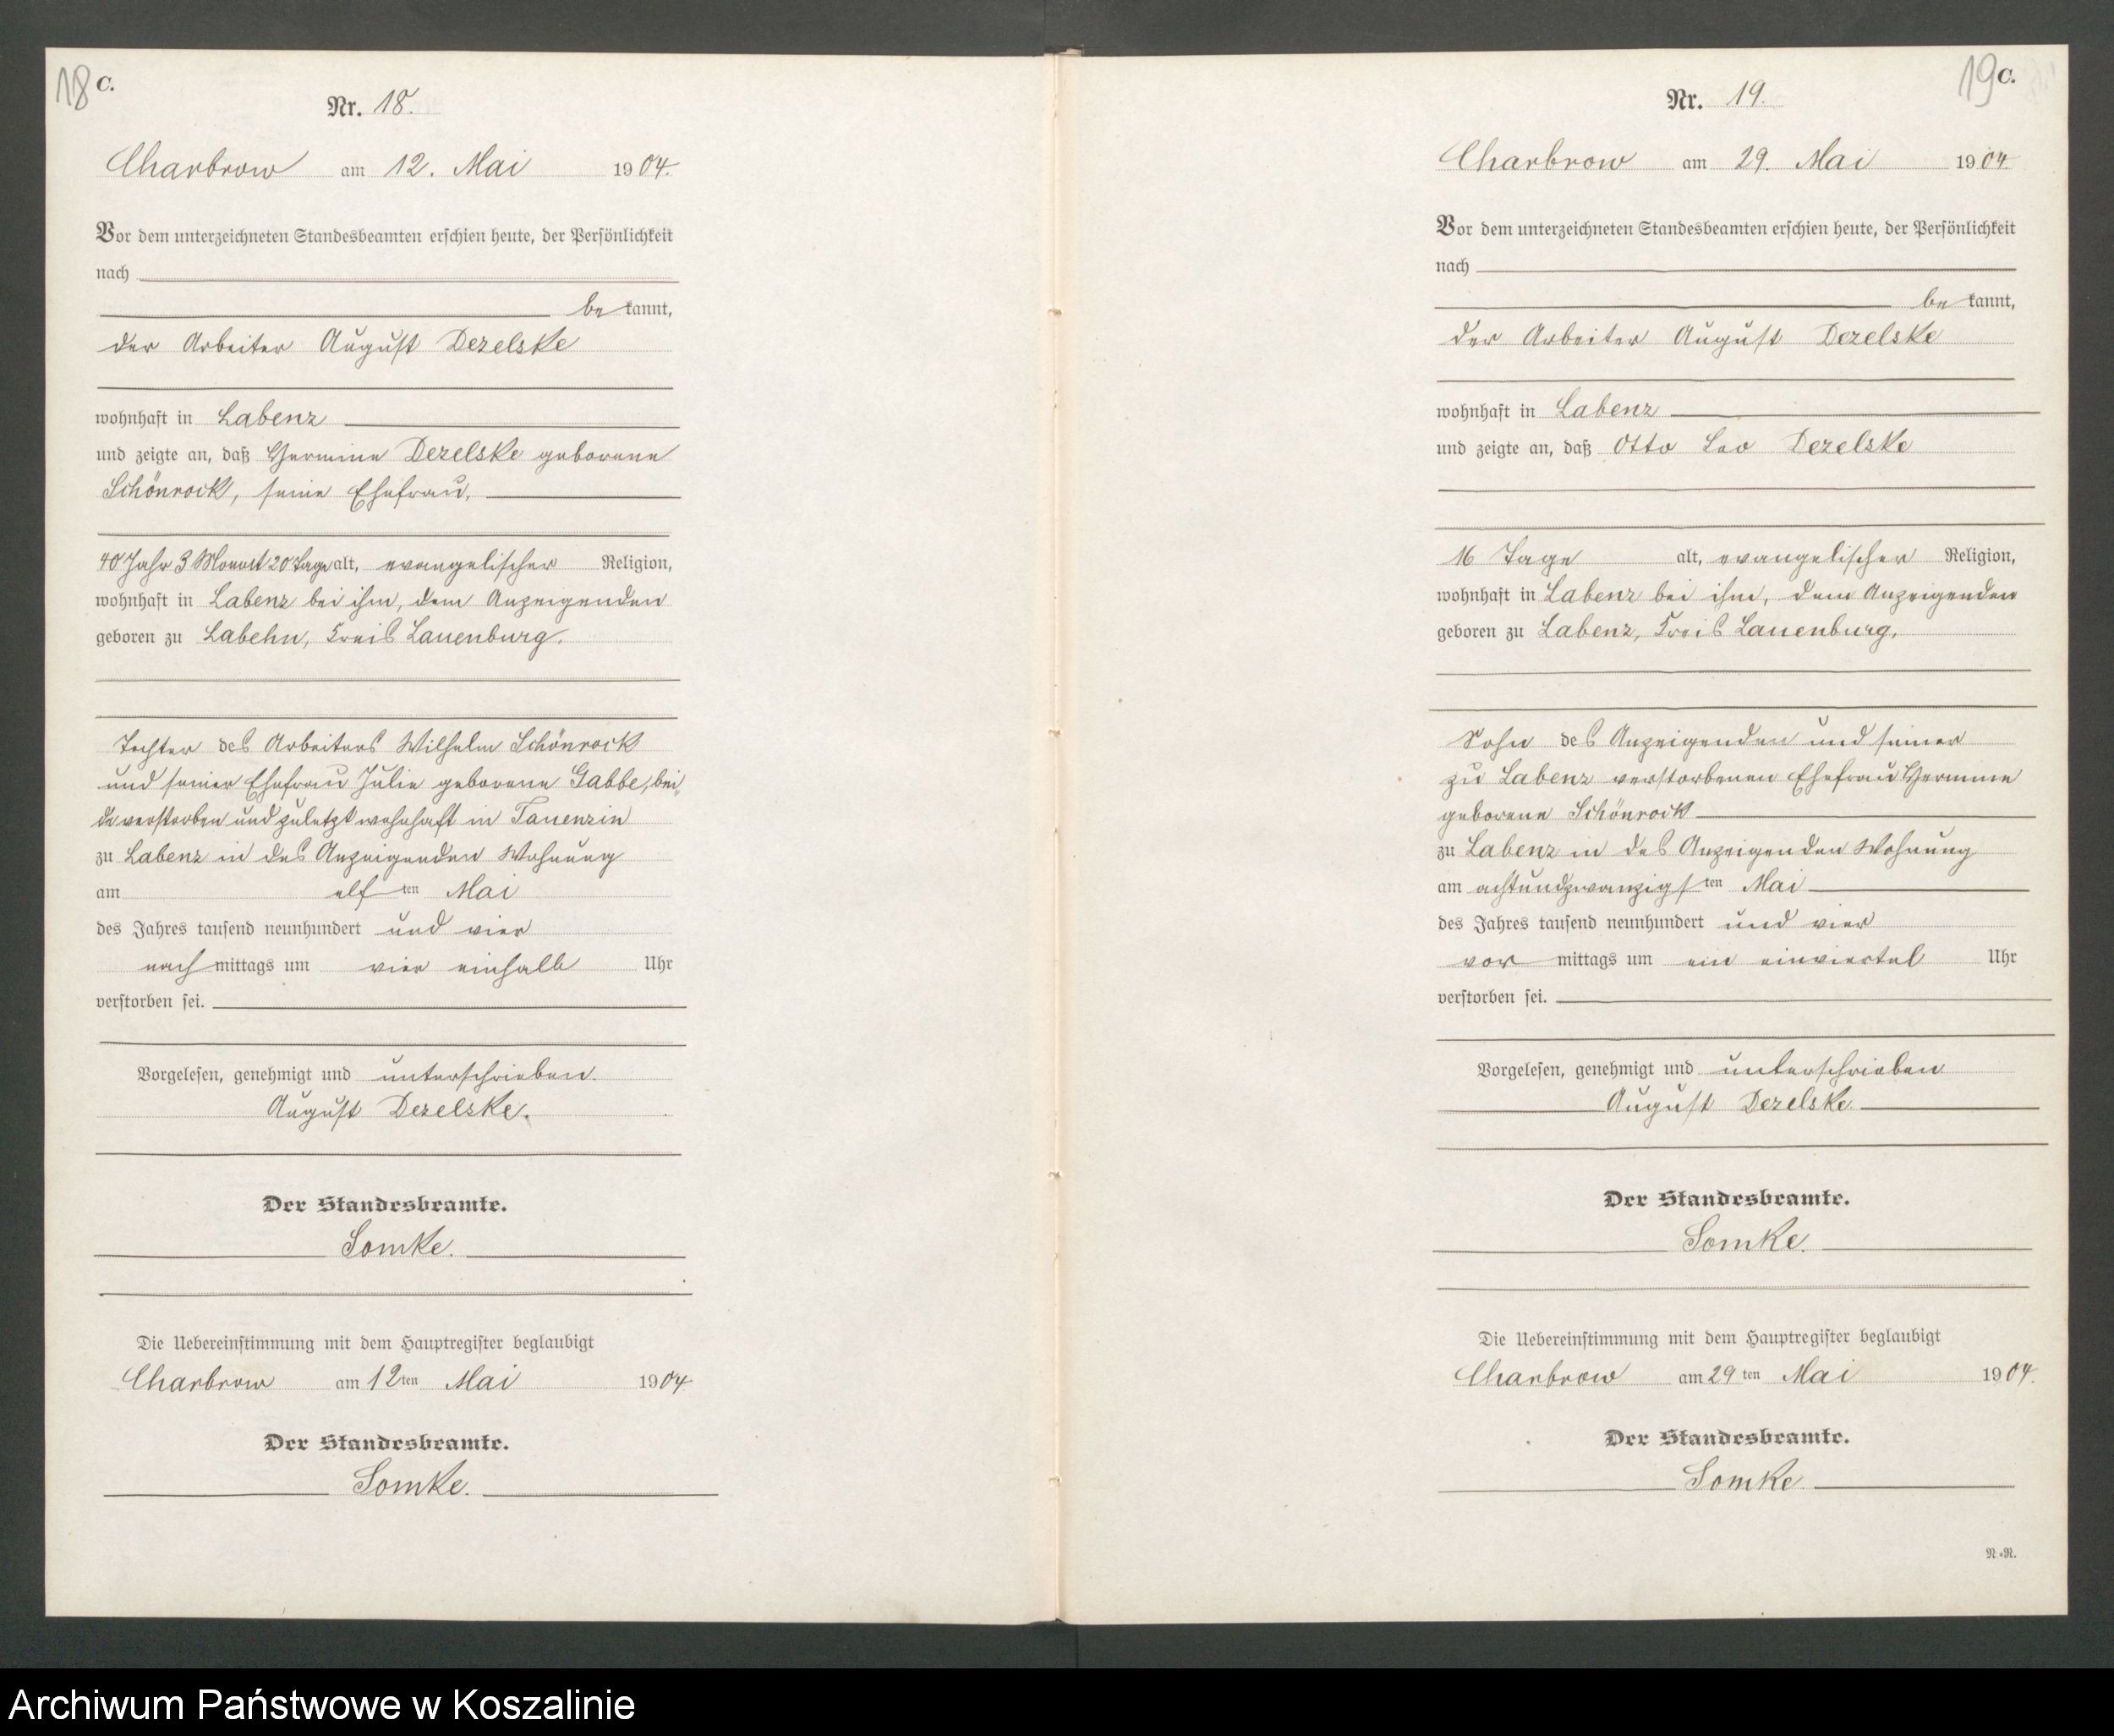 18 C.
Nr. 18.
Charbrow am 12. Mai 1904.
Vor dem unterzeichneten Standesbeamten erschien heute, der Persönlichkeit
nach
be kannt,
der Arbeiter August Dezelske
wohnhaft in Labenz
und zeigte an, daß Hermine Dezelske geborene
Schönrock, seine Ehefrau,
40 Jahr 3 Monat 20 Tage alt, evangelischer Religion,
wohnhaft in Labenz bei ihm, dem Anzeigenden
geboren zu Labehn, Kreis Lauenburg.
Tochter des Arbeiters Wilhelm Schönrock
und seiner Ehefrau Julie geborene Gabbe, bei
de verstorben und zuletzt wohnhaft in Tauenzin
zu Labenz in des Anzeigenden Wohnung
am elf ten Mai
des Jahres tausend neunhundert und vier
nach mittags um vier einhalb Uhr
verstorben sei.
Vorgelesen, genehmigt und unterschrieben.
August Dezelske.
Der Standesbeamte.
Somke.
Die Uebereinstimmung mit dem Hauptregister beglaubigt
Charbrow am 12ten Mai 1904
Der Standesbeamte.
Somke.
19 C.
Nr. 19.
Charbrow am 29. Mai 1904
Vor dem unterzeichneten Standesbeamten erschien heute, der Persönlichkeit
nach
be kannt,
der Arbeiter August Dezelske
wohnhaft in Labenz
und zeigte an, daß Otto Leo Dezelske
16 Tage alt, evangelischer Religion,
wohnhaft in Labenz bei ihm, dem Anzeigenden
geboren zu Labenz, Kreis Lauenburg,
Sohn des Anzeigenden und seiner
zu Labenz verstorbenen Ehefrau Hermine
geborene Schönrock
zu Labenz in des Anzeigenden Wohnung
am achtundzwanzigsten Mai
des Jahres tausend neunhundert und vier
vor mittags um ein einviertel Uhr
verstorben sei.
Vorgelesen, genehmigt und unterschrieben
August Dezelske.
Der Standesbeamte.
Somke.
Die Uebereinstimmung mit dem Hauptregister beglaubigt
Charbrow am 29 ten Mai 1904.
Der Standesbeamte.
Somke.
N.=R.
Archiwum Państwowe w Koszalinie